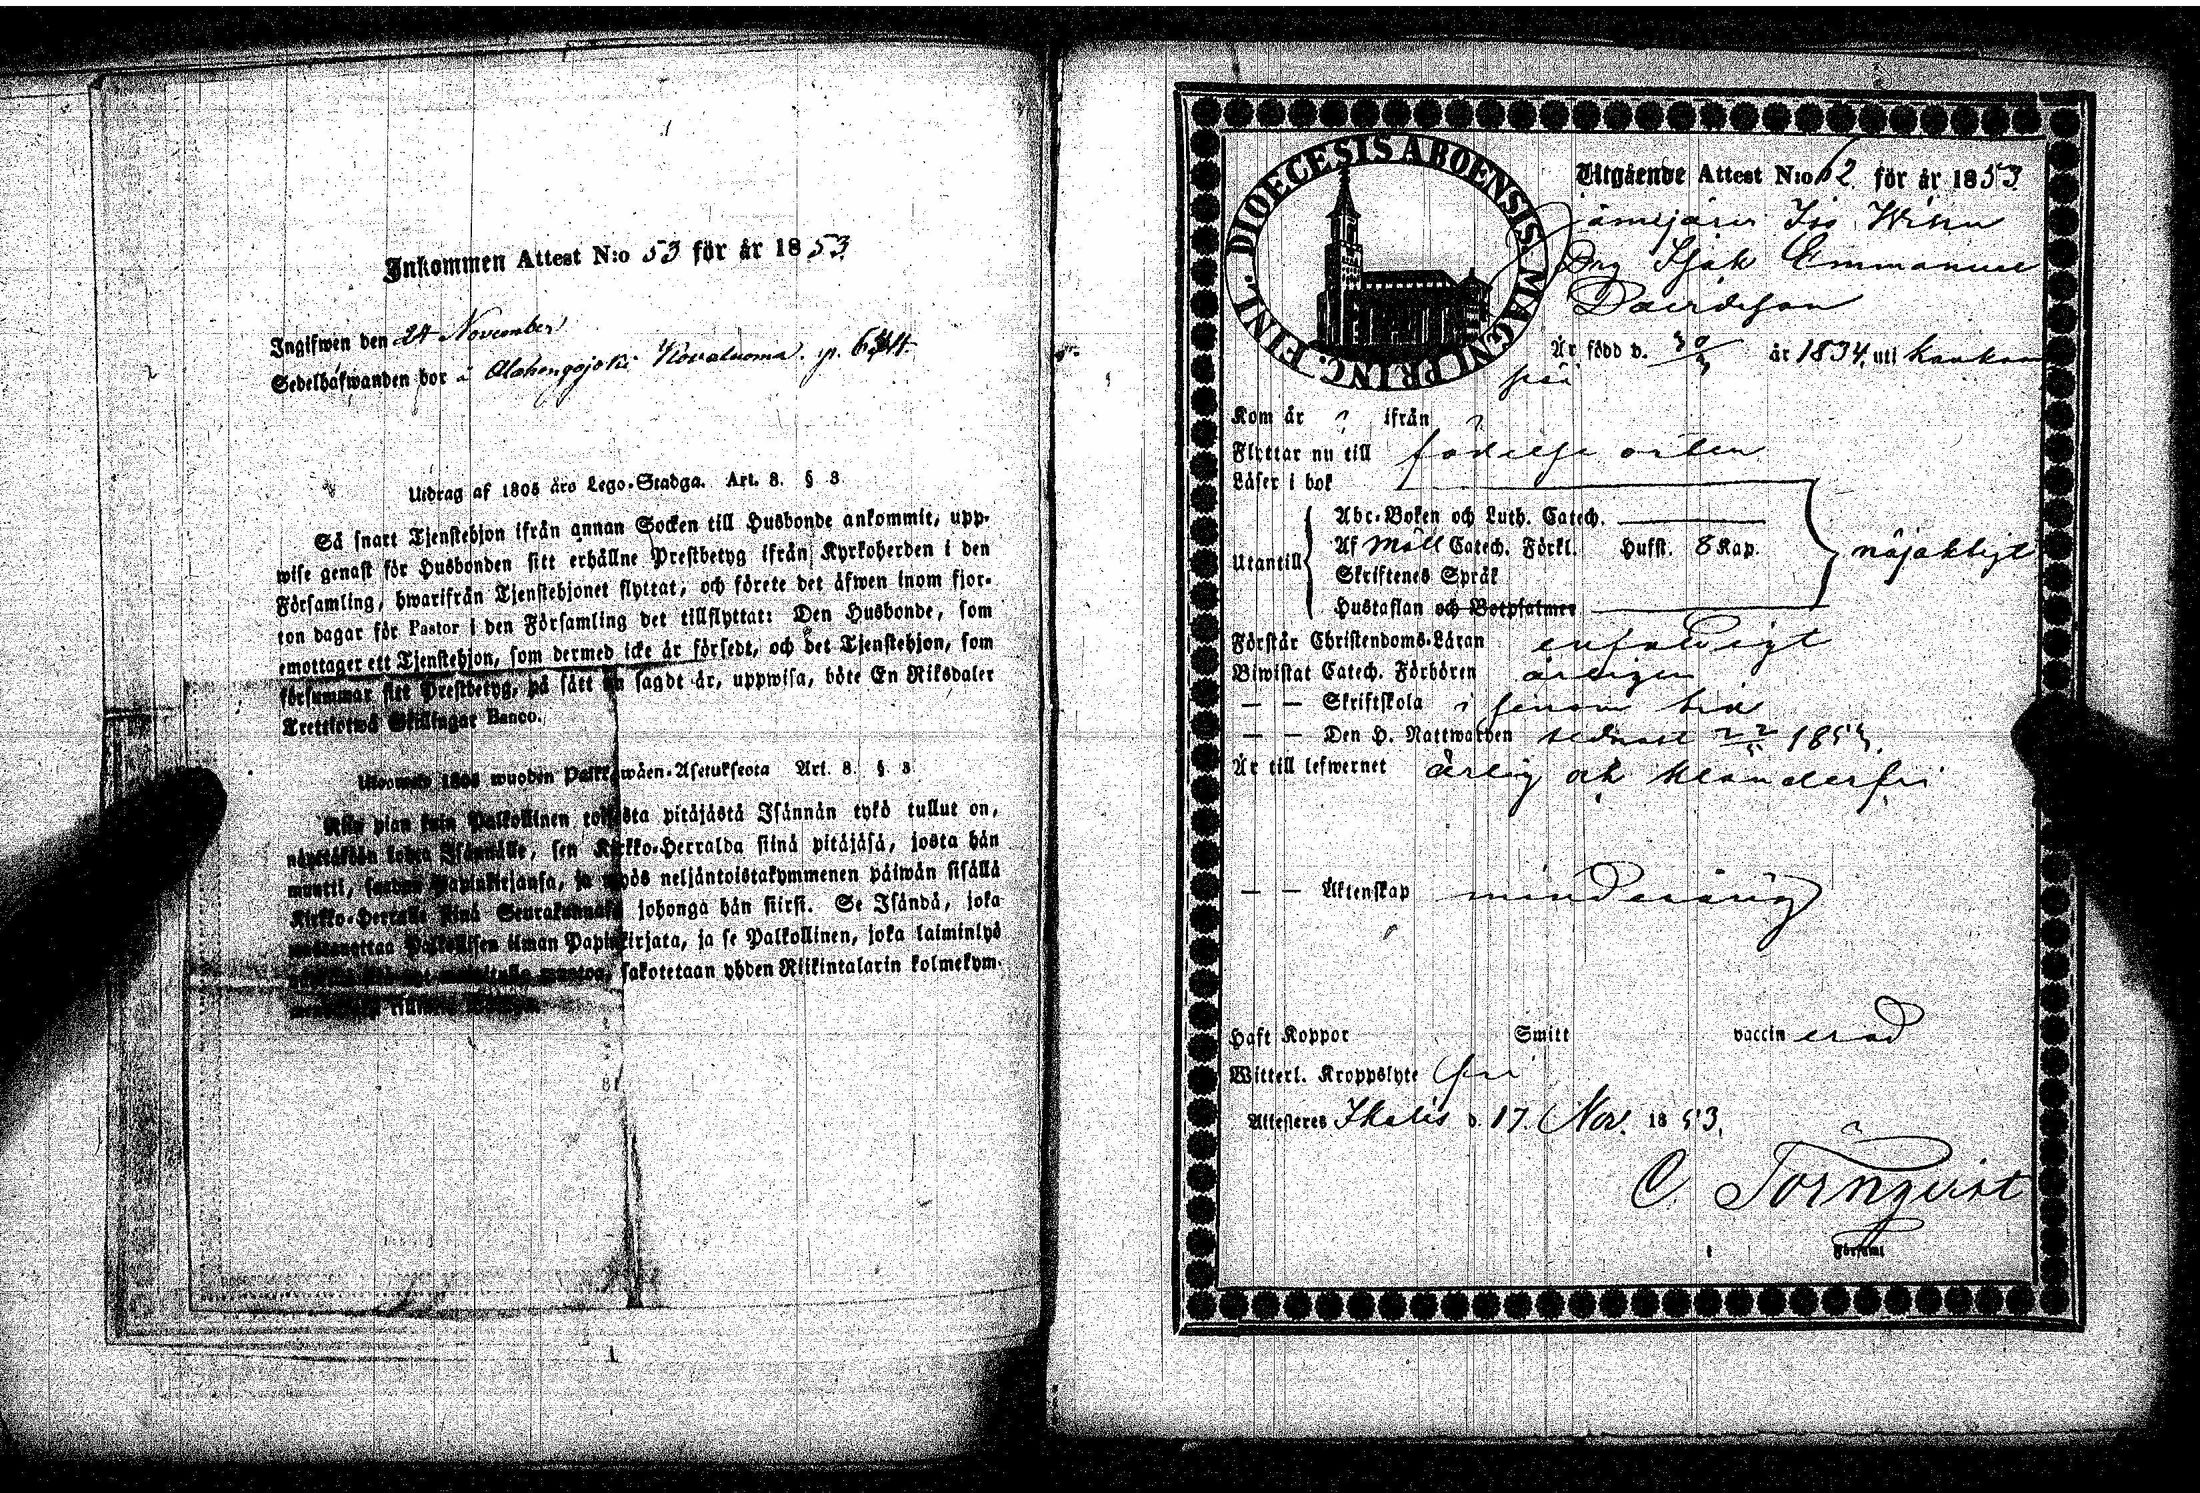 Inkommen Attest N:o 53 för år 1853.
Ingifwen den 24 November
Sedelhafwanden bor å Alahongojoki Kovaluoma. p.
Utdrag af 1805 års Lego-Stadga. Art. 8. § 3
Så snart Tjenstehjon ifrån annan Socken till Husbonde ankommit, upp-
wise genast för Husbonden sitt erhållne Prestbetyg ifrån Kyrkoherden i den
Församling, hwarifrån Tjenstehjonet flyttat, och förete det äfwen inom fjor-
ton dagar för Pastor i den Församling det tillflyttat: Den Husbonde, som
emottager ett Tjenstehjon, som dermed icke är försedt, och det Tjenstehjon, som
försummar sitt Prestbetyg, på sätt nu sagdt är, uppwisa, böte En Riksdaler
Trettiotwå Skillingar Banco.
1805 wuoden Palkkawäen-Asetuksesta Art. 8. § 3
Niin pian kuin Palkollinen toisesta pitäjästä Isännän tykö tullut on,
näyttäkään kohta Isännälle, sen Kirkko-Herralda siinä pitäjäsä, josta hän
muutti, saadun Papinkirjansa, ja myös neljäntoistakymmenen päiwän sisällä
Kirkko-Herralle siinä Seurakunnasa johonga hän siirsi. Se Isändä, joka
wastaanottaa Palkollisen ilman Papinkirjata, ja se Palkollinen, joka laiminlyö
sakotetaan yhden Riikintalarin kolmekym-
DIOECESIS ABOENSIS MAGNI PRINC. FINL.
Utgående Attest N:o 62 för år 1853.
Jämijärvi
Drg Isak Emmanuel
Davidsson
Är född d. 30/3 år 1834, uti Kankaan
pää
Kom år ? ifrån ?
Flyttar nu till födelse orten
Läser i bok
Abc-Boken och Luth. Catech.
Utantill Af Möll Catech. Förkl. Hufst. 8 Kap. nöjaktigt
Skriftenes Språk
Hustaflan och Botpsalmer
Förstår Christendoms-Läran enfaldigt
Biwistat Catech. Förhören årligen
— — Skriftskola i sinom tid
— — Den H. Nattwarden sednast 22/5 1853.
Är till lefwernet ärlig och klanderfri
— — Äktenskap minderårig
Haft Koppor Smitt vaccin erad
Witterl. Kroppslyte fri
Attesteres Ikalis d. 17. Nov. 1853.
C Törnqvist
i Församl